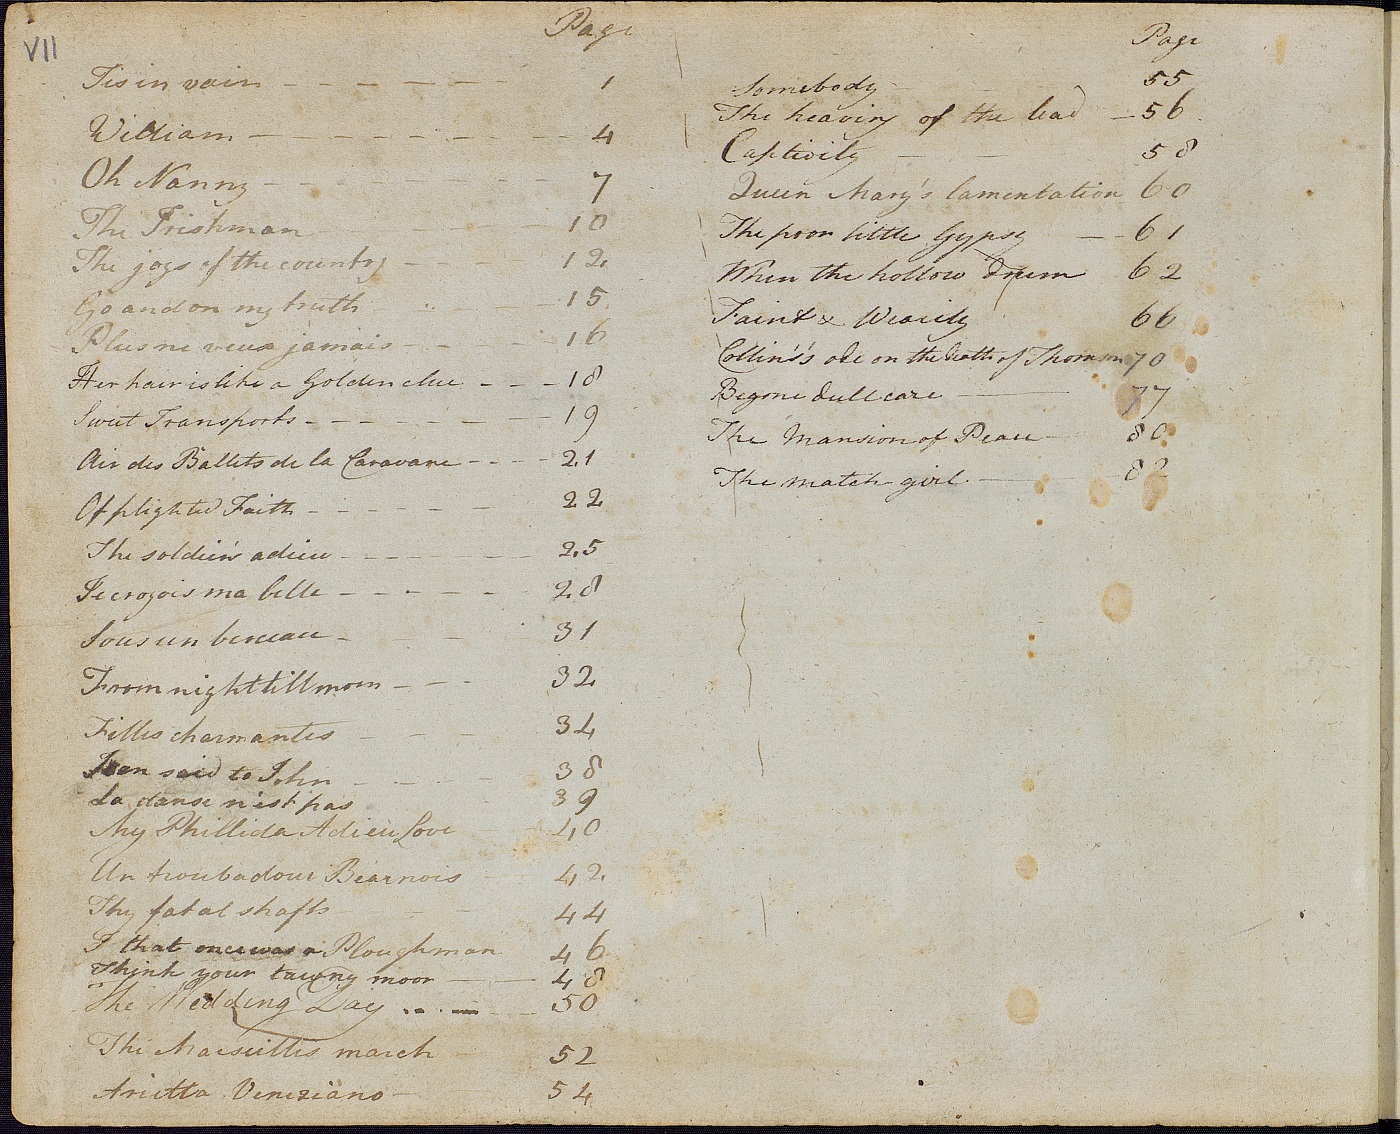 VII
Page
Tis in vain 1
William 4
Oh Nanny 7
The Irishman 10
The joys of the country 12
Go and on my truth 15
Plus ne veux jamais 16
Her hair is like a Golden clue 18
Sweet Transports 19
Air des Ballets de la Caravane 21
Of plighted Faith 22
The soldier's adieu 25
Je croyois ma belle 28
Sous un berceau 31
From night till morn 32
Filles charmantes 34
Jean said to John 38
La danse n'est pas 39
My Phillida Adieu Love 40
Un troubadour Béarnois 42
Thy fatal shafts 44
I that once was a Ploughman 46
Think your tawny moor 48
The Wedding Day 50
The Marseilles march 52
Arietta Veneziano 54
Page
Somebody 55
The heaving of the lead 56
Captivity 58
Queen Mary's lamentation 60
The poor little Gypsy 61
When the hollow drum 62
Faint & Wearily 66
Collins's ode on the death of Thomson 70
Begone dull care 77
The Mansion of Peace 80
The match girl 82